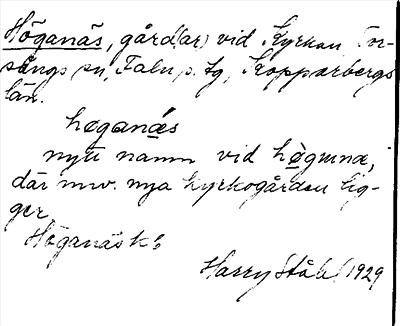 Höganäs, gård(ar) vid Kyrkan, Tor-
sångs sn, Falu s. tg, Kopparbergs
län.
høganäs
nytt namn vid høgmna,
där nuv. nya kyrkogården lig-
ger.
Höganäsk:
Harry Ståhl 1929